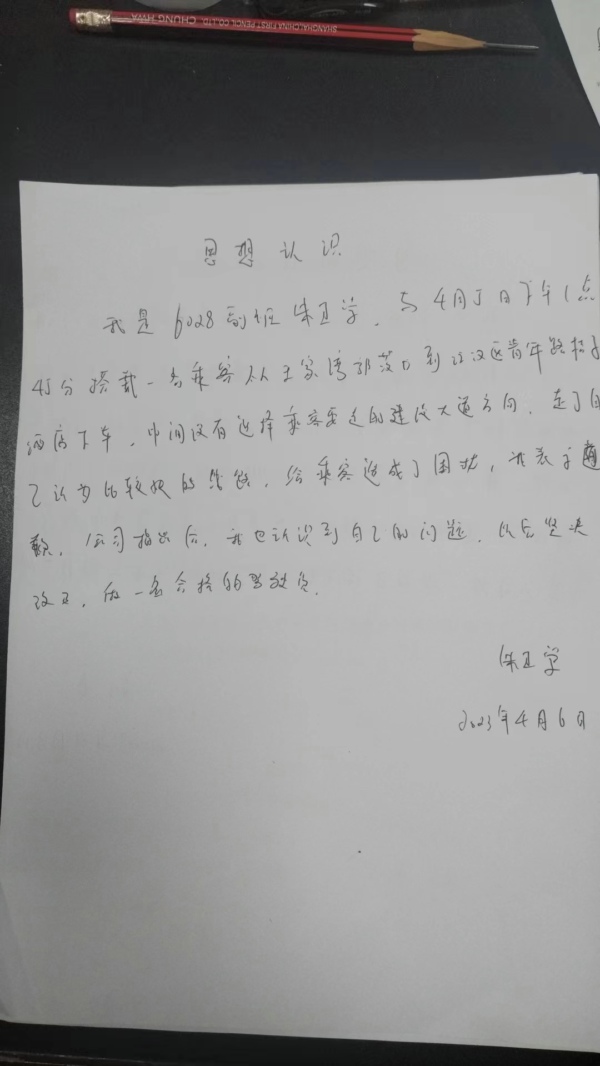 CHUNG HWA
SHANGHAI CHINA FIRST PENCIL CO.,LTD.
思想认识
我是6028副班朱卫学,与4月5日下午1点
45分搭载一名乘客从王家湾到江汉区青年路
酒店下车,中间没有选择乘客要走的建设大道方向,走了自
己认为比较快的线路,给乘客造成了困扰,我表示道
歉,公司指出后,我也认识到自己的问题,以后坚决
改正,做一名合格的驾驶员.
朱卫学
2023年4月6日